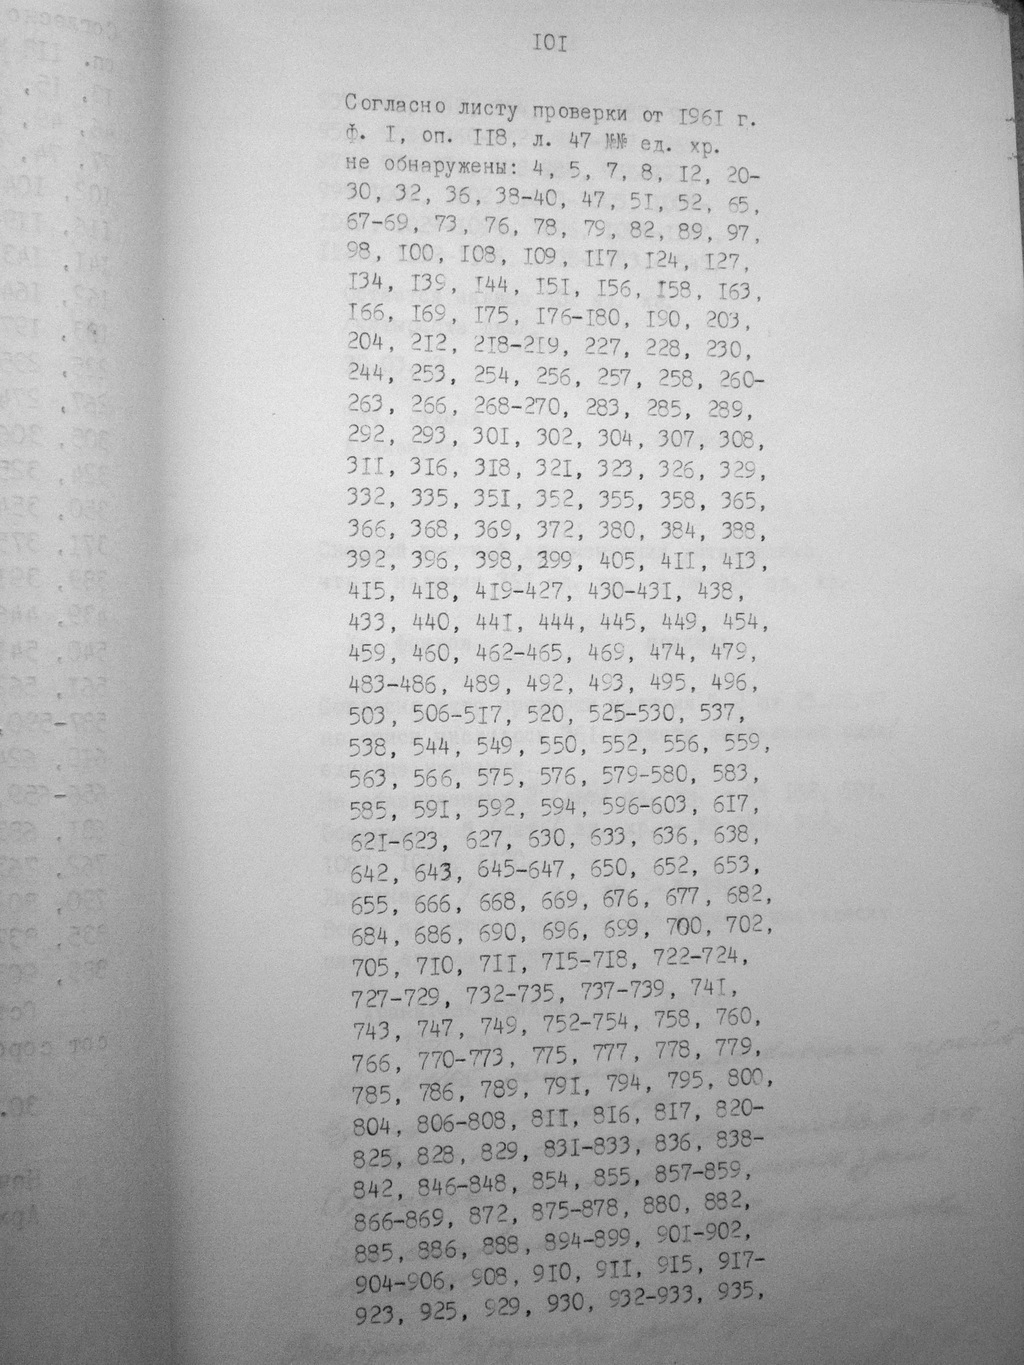 IOI
Согласно листу проверки от I96I г.
Ф. I, оп. II8, л. 47 №№ ед. хр.
не обнаружены: 4, 5, 7, 8, I2, 20-
30, 32, 36, 38-40, 47, 5I, 52, 65,
67-69, 73, 76, 78, 79, 82, 89, 97,
98, I00, I08, I09, II7, I24, I27,
I34, I39, I44, I5I, I56, I58, I63,
I66, I69, I75, I76-I80, I90, 203,
204, 2I2, 2I8-2I9, 227, 228, 230,
244, 253, 254, 256, 257, 258, 260-
263, 266, 268-270, 283, 285, 289,
292, 293, 30I, 302, 304, 307, 308,
3II, 3I6, 3I8, 32I, 323, 326, 329,
332, 335, 35I, 352, 355, 358, 365,
366, 368, 369, 372, 380, 384, 388,
392, 396, 398, 399, 405, 4II, 4I3,
4I5, 4I8, 4I9-427, 430-43I, 438,
433, 440, 44I, 444, 445, 449, 454,
459, 460, 462-465, 469, 474, 479,
483-486, 489, 492, 493, 495, 496,
503, 506-5I7, 520, 525-530, 537,
538, 544, 549, 550, 552, 556, 559,
563, 566, 575, 576, 579-580, 583,
585, 59I, 592, 594, 596-603, 6I7,
62I-623, 627, 630, 633, 636, 638,
642, 643, 645-647, 650, 652, 653,
655, 666, 668, 669, 676, 677, 682,
684, 686, 690, 696, 699, 700, 702,
705, 7I0, 7II, 7I5-7I8, 722-724,
727-729, 732-735, 737-739, 74I,
743, 747, 749, 752-754, 758, 760,
766, 770-773, 775, 777, 778, 779,
785, 786, 789, 79I, 794, 795, 800,
804, 806-808, 8II, 8I6, 8I7, 820-
825, 828, 829, 83I-833, 836, 838-
842, 846-848, 854, 855, 857-859,
866-869, 872, 875-878, 880, 882,
885, 886, 888, 894-899, 90I-902,
904-906, 908, 9I0, 9II, 9I5, 9I7-
923, 925, 929, 930, 932-933, 935,